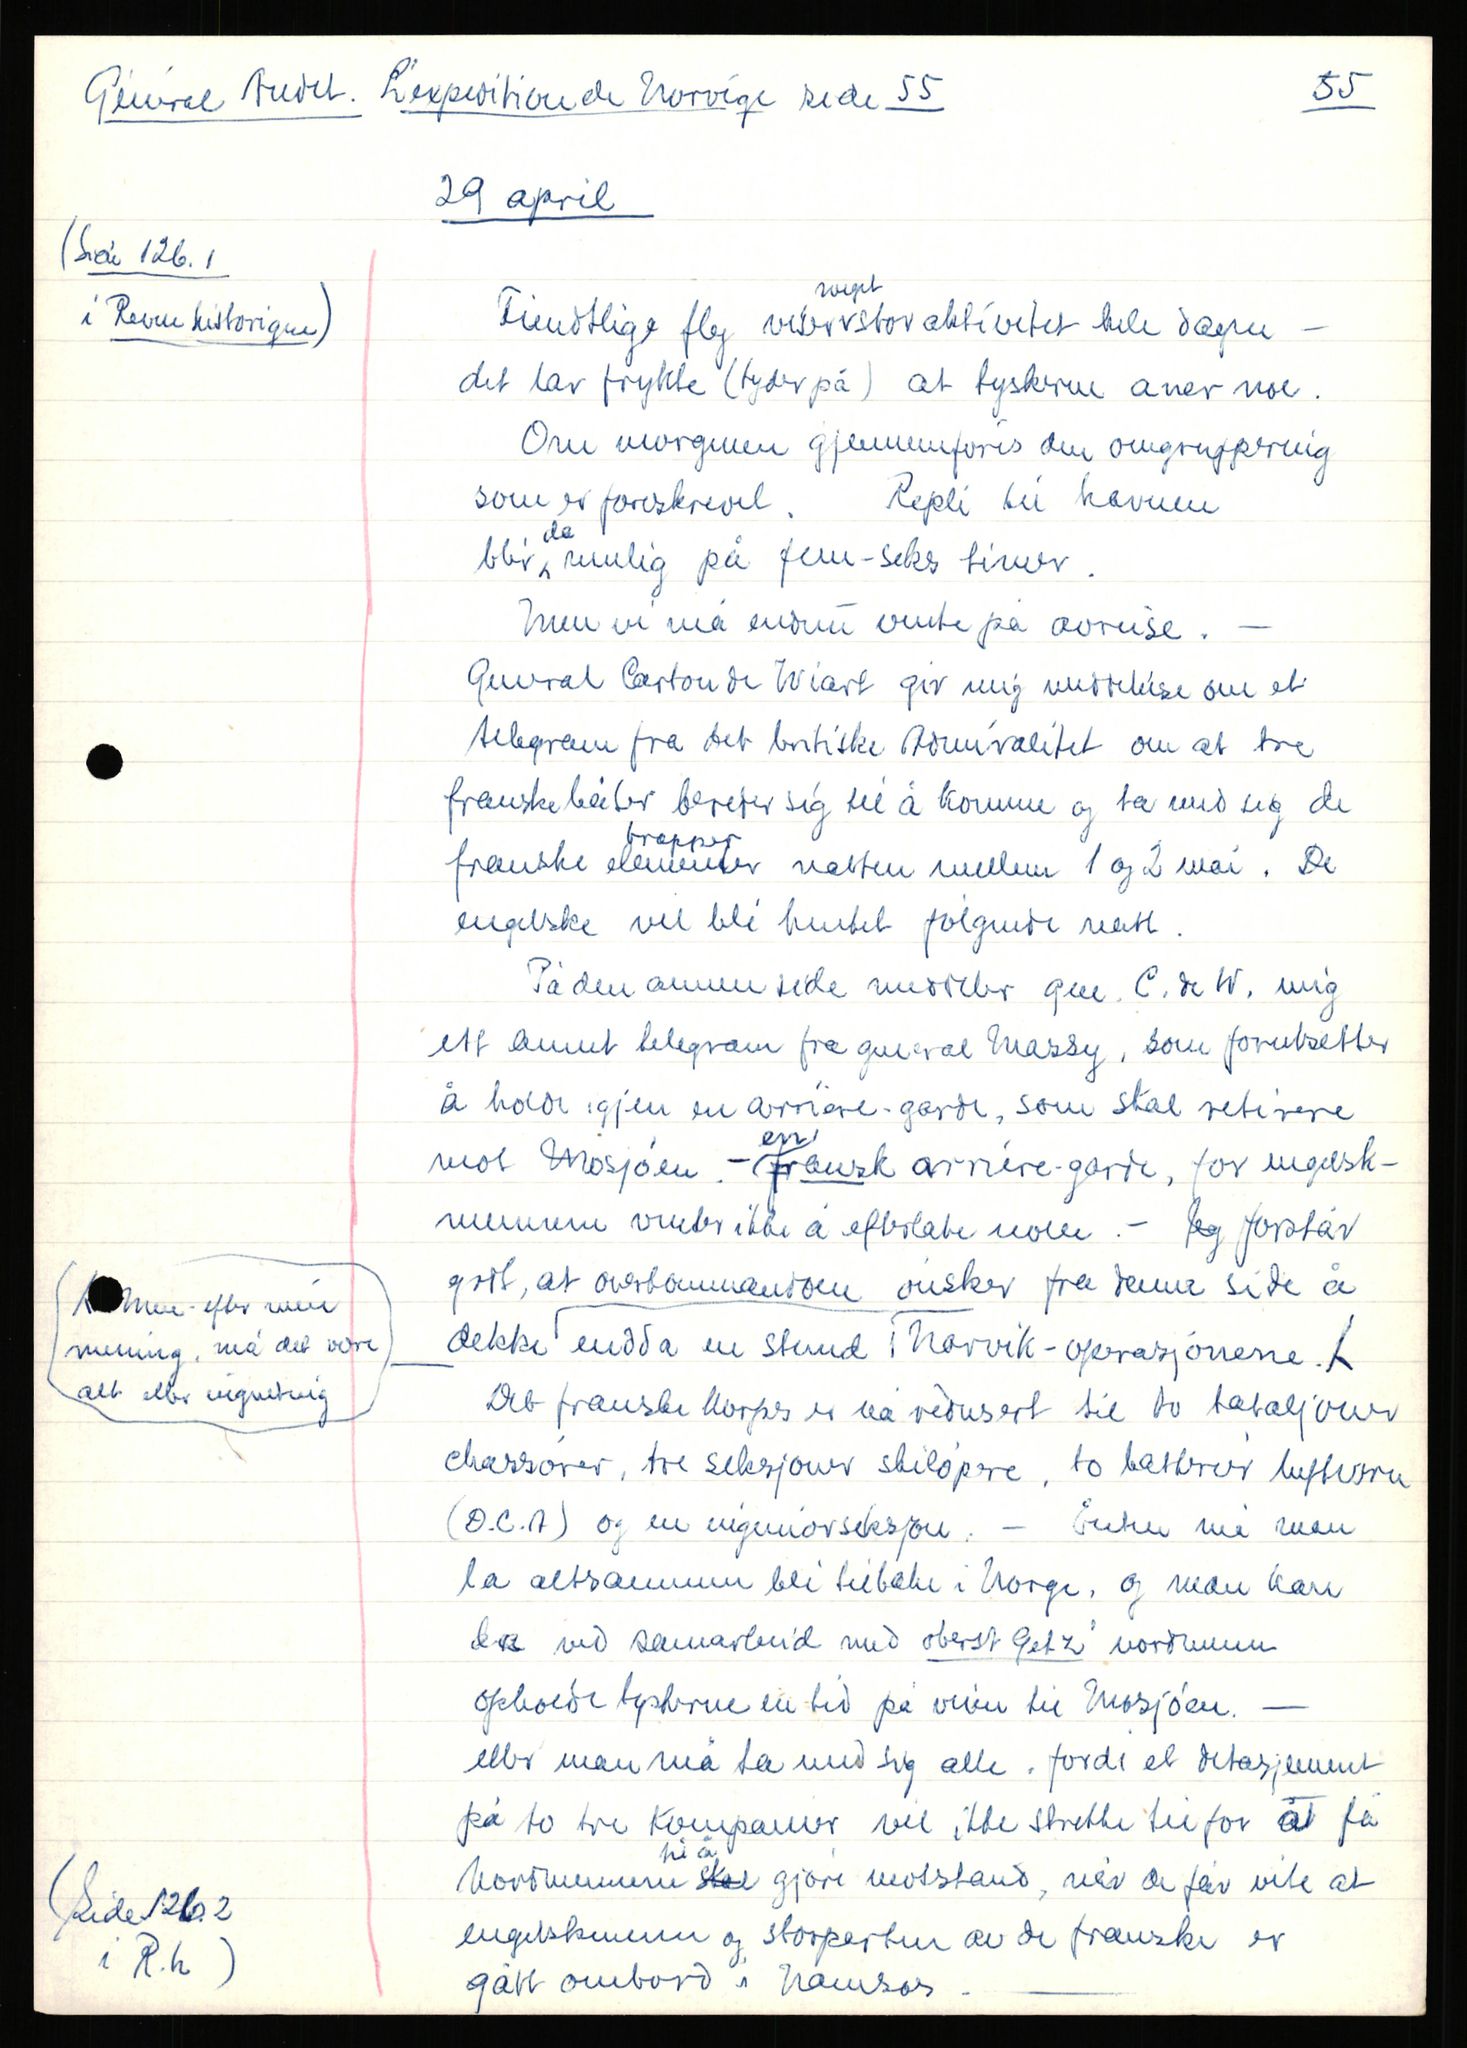 Général Audet. L'expedition de Norvège side 55
55
29 april
(Side 126.1
i Revue historique)
meget
Fiendtlige fly viser stor aktivitet hele dagen –
det lar frykte (tyder på) at tyskerne aner noe.
Om morgenen gjennemføres den omgruppering
som er foreskrevet. Repli til havnen
da
blir mulig på fem-seks timer.
Men vi må ennu vente på avreise. —
General Carton de Wiart gir mig meddelelse om et
telegram fra det britiske Admiralitet om at tre
franske båter bereder sig til å komme og ta med sig de
tropper
franske elementer natten mellem 1 og 2 mai. De
engelske vil bli hentet følgende natt.
På den annen side meddeler gen. C. de W. mig
ett annet telegram fra general Massy, som forutsetter
å holde igjen en arrière-garde, som skal retirere
en
mot Mosjøen. – fransk arrière-garde, for engelsk-
mennene venter ikke å efterlate noen. – Jeg forstår
godt, at overkommandoen ønsker fra denne side å
dekke endda en stund Narvik-operasjonene.
Men efter min
mening, må det være
alt eller ingenting
Det franske korps er nå redusert til to bataljoner
chassører, tre seksjoner skiløpere, to batterier luftvern
(D.C.A) og en ingeniørseksjon. – Enten må man
la altsammen bli tilbake i Norge, og man kan
da ved samarbeid med oberst Getz' nordmenn
opholde tyskerne en tid på veien til Mosjøen. —
eller man må ta med sig alle, fordi et detasjement
på to tre kompanier vil ikke strekke til for å få
til å
Nordmennene skal gjøre motstand, når de får vite at
engelskmenn og storparten av de franske er
gått ombord i Namsos.
(Side 126.2
i R.h)